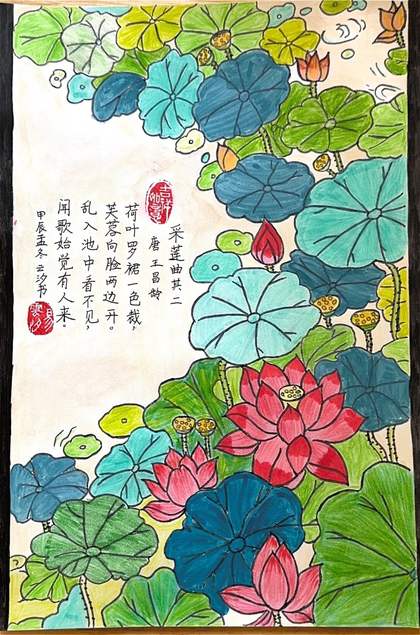 吉祥如意
采莲曲其二
唐 王昌龄
荷叶罗裙一色裁，
芙蓉向脸两边开。
乱入池中看不见，
闻歌始觉有人来。
甲辰孟冬云汐书
易雲汐